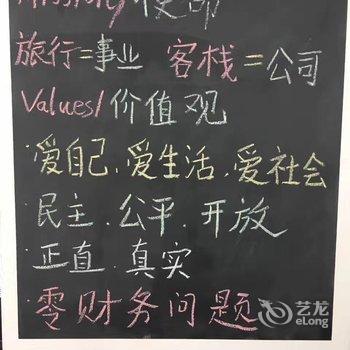 Mission/使命
旅行=事业 客栈=公司
Values/价值观
·爱自己、爱生活、爱社会
·民主、公平、开放
·正直、真实
·零财务问题
艺龙
eLong